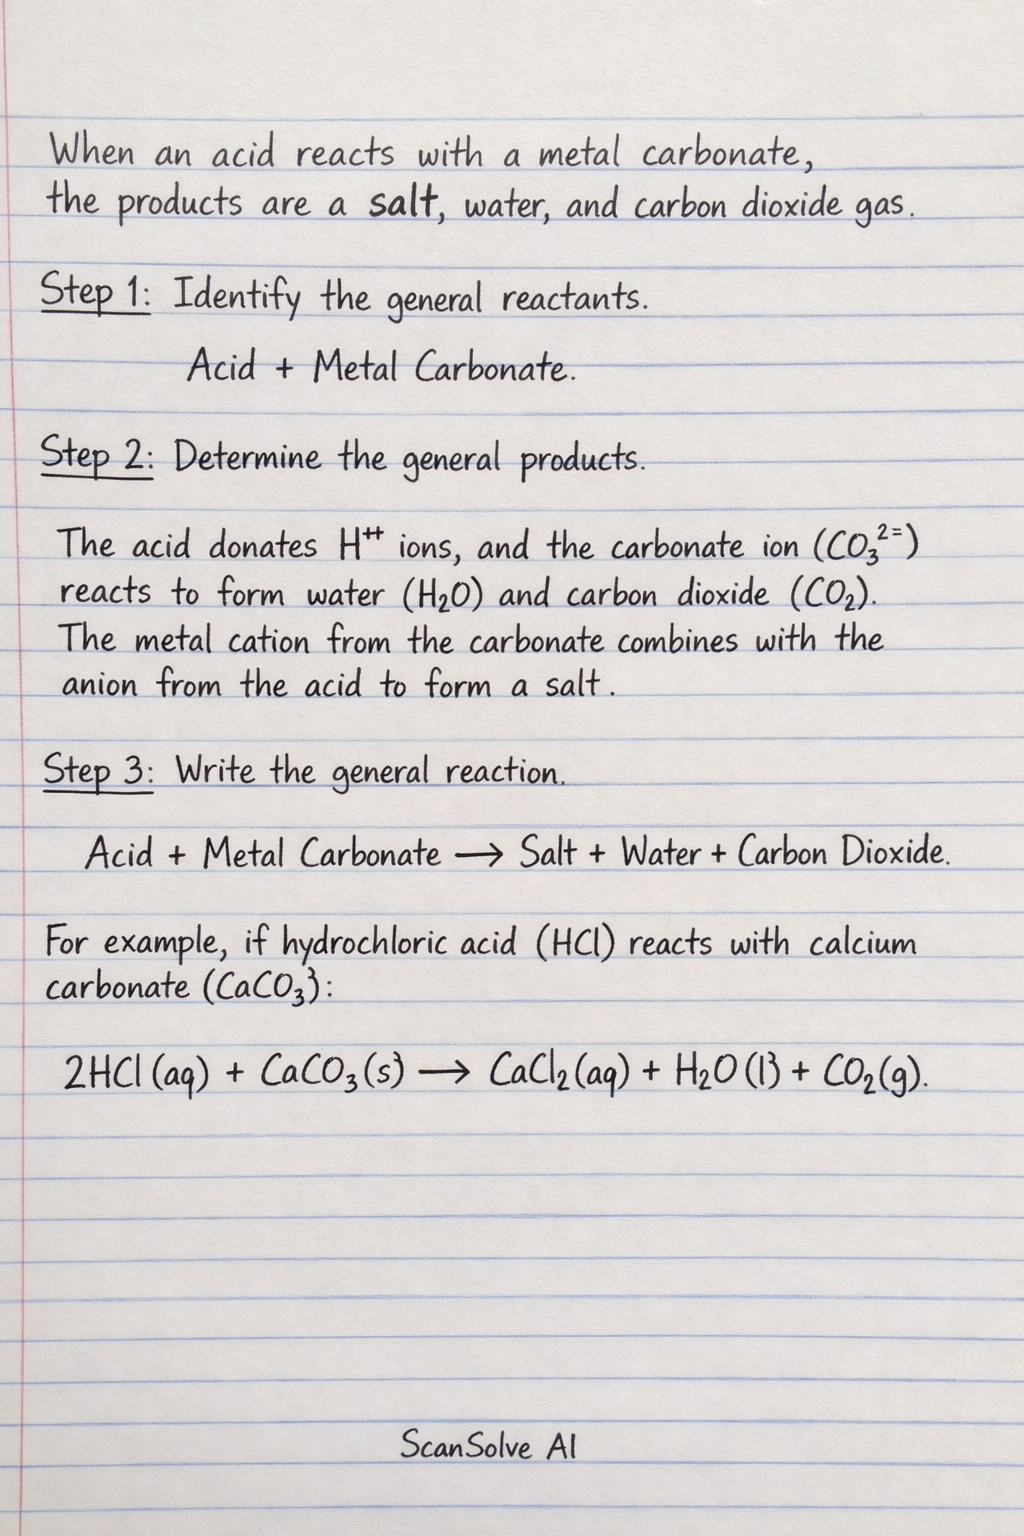 When an acid reacts with a metal carbonate,
the products are a salt, water, and carbon dioxide gas.
Step 1: Identify the general reactants.
Acid + Metal Carbonate.
Step 2: Determine the general products.
The acid donates H⁺⁺ ions, and the carbonate ion (CO₃²⁼)
reacts to form water (H₂O) and carbon dioxide (CO₂).
The metal cation from the carbonate combines with the
anion from the acid to form a salt.
Step 3: Write the general reaction.
Acid + Metal Carbonate → Salt + Water + Carbon Dioxide.
For example, if hydrochloric acid (HCl) reacts with calcium
carbonate (CaCO₃):
2HCl (aq) + CaCO₃(s) → CaCl₂(aq) + H₂O (l) + CO₂(g).
ScanSolve AI